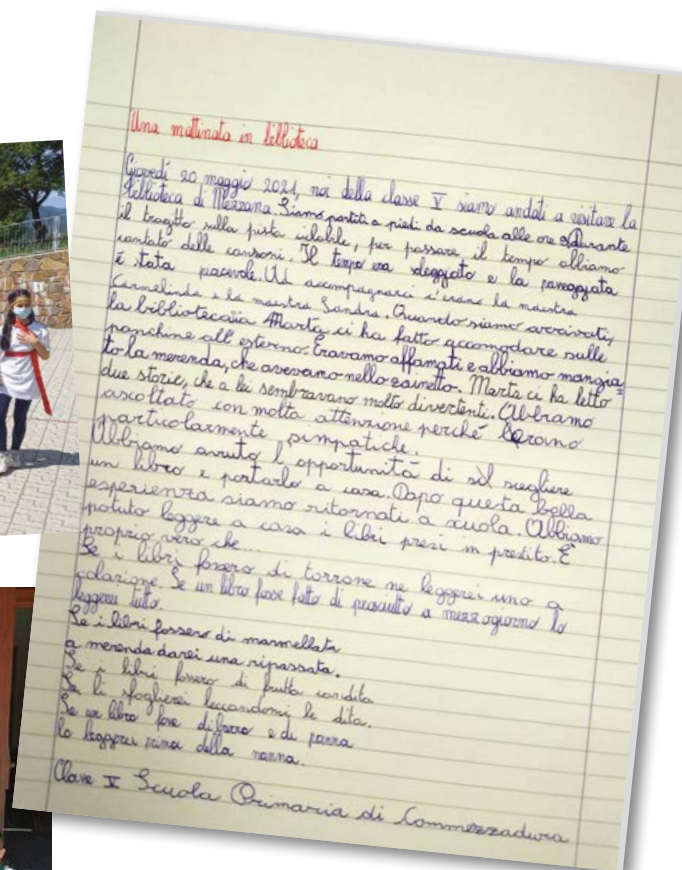 Una mattinata in biblioteca
Giovedì 20 maggio 2021, noi della classe V siamo andati a visitare la
biblioteca di Mezzana. Siamo partiti a piedi da scuola alle ore Durante
il tragitto sulla pista ciclabile, per passare il tempo abbiamo
cantato delle canzoni. Il tempo era soleggiato e la passeggiata
è stata piacevole. Ad accompagnarci c'erano la maestra
Carmelinda e la maestra Sandra. Quando siamo arrivati,
la bibliotecaia Marta ci ha fatto accomodare sulle
panchine all'esterno. Eravamo affamati e abbiamo mangia=
to la merenda, che avevamo nello zainetto. Marta ci ha letto
due storie, che a lei sembravano molto divertenti. Abbiamo
ascoltato con molta attenzione perché erano
particolarmente simpatiche.
Abbiamo avuto l'opportunità di scegliere
un libro e portarlo a casa. Dopo questa bella
esperienza siamo ritornati a scuola. Abbiamo
potuto leggere a casa i libri presi in prestito. È
proprio vero che...
Se i libri fossero di torrone ne leggerei uno a
colazione. Se un libro fosse fatto di prosciutto a mezzogiorno lo
leggerei tutto.
Se i libri fossero di marmellata
a merenda darei una ripassata.
Se i libri fossero di frutta candita
li sfoglierei leccandomi le dita.
Se un libro fosse di burro e di panna
lo leggerei prima della nanna.
Classe V Scuola Primaria di Commezzadura